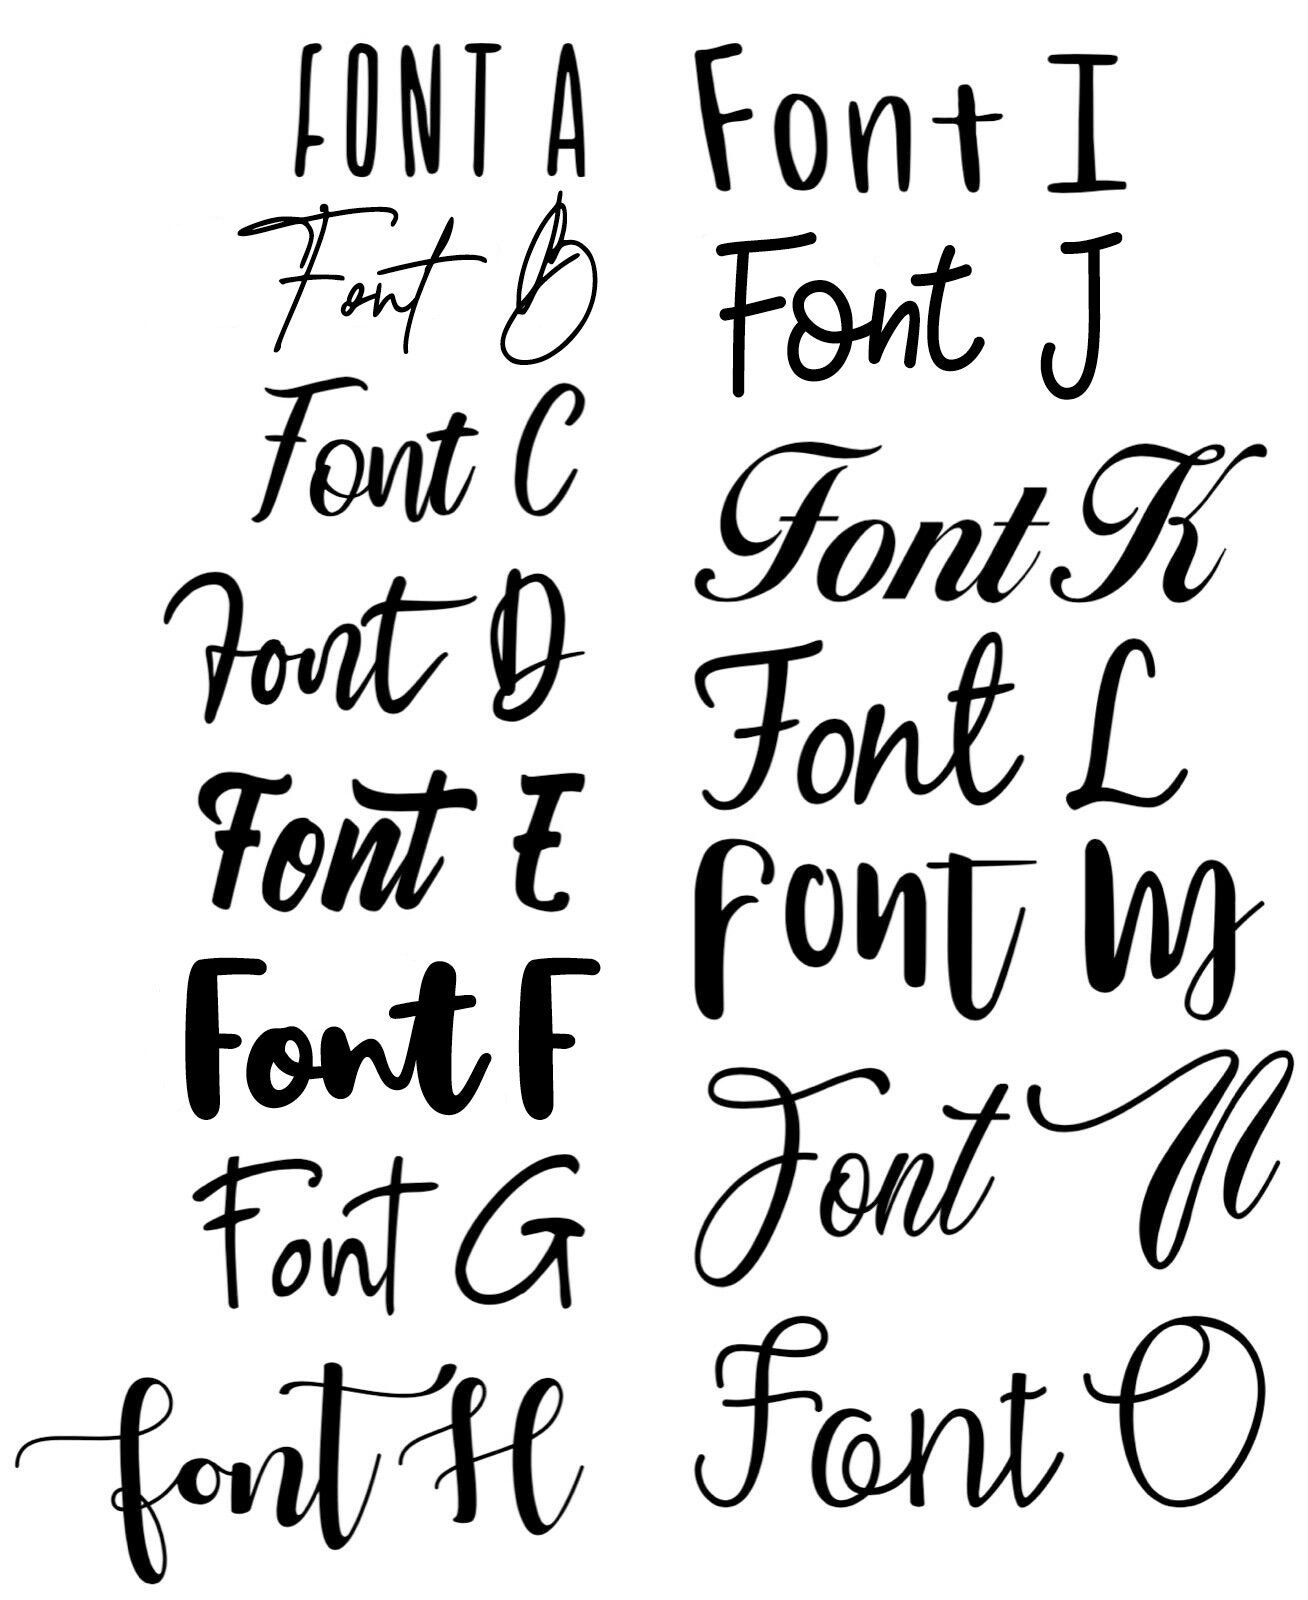 FONT A
Font B
Font C
Font D
Font E
Font F
Font G
font H
Font I
Font J
Font K
Font L
Font M
Font N
Font O